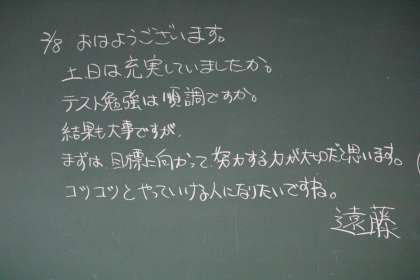 2/8 おはようございます。
土日は充実していましたか。
テスト勉強は順調ですか。
結果も大事ですが、
まずは、目標に向かって、努力する力が大切だと思います。(
コツコツとやっていける人になりたいですね。
遠藤